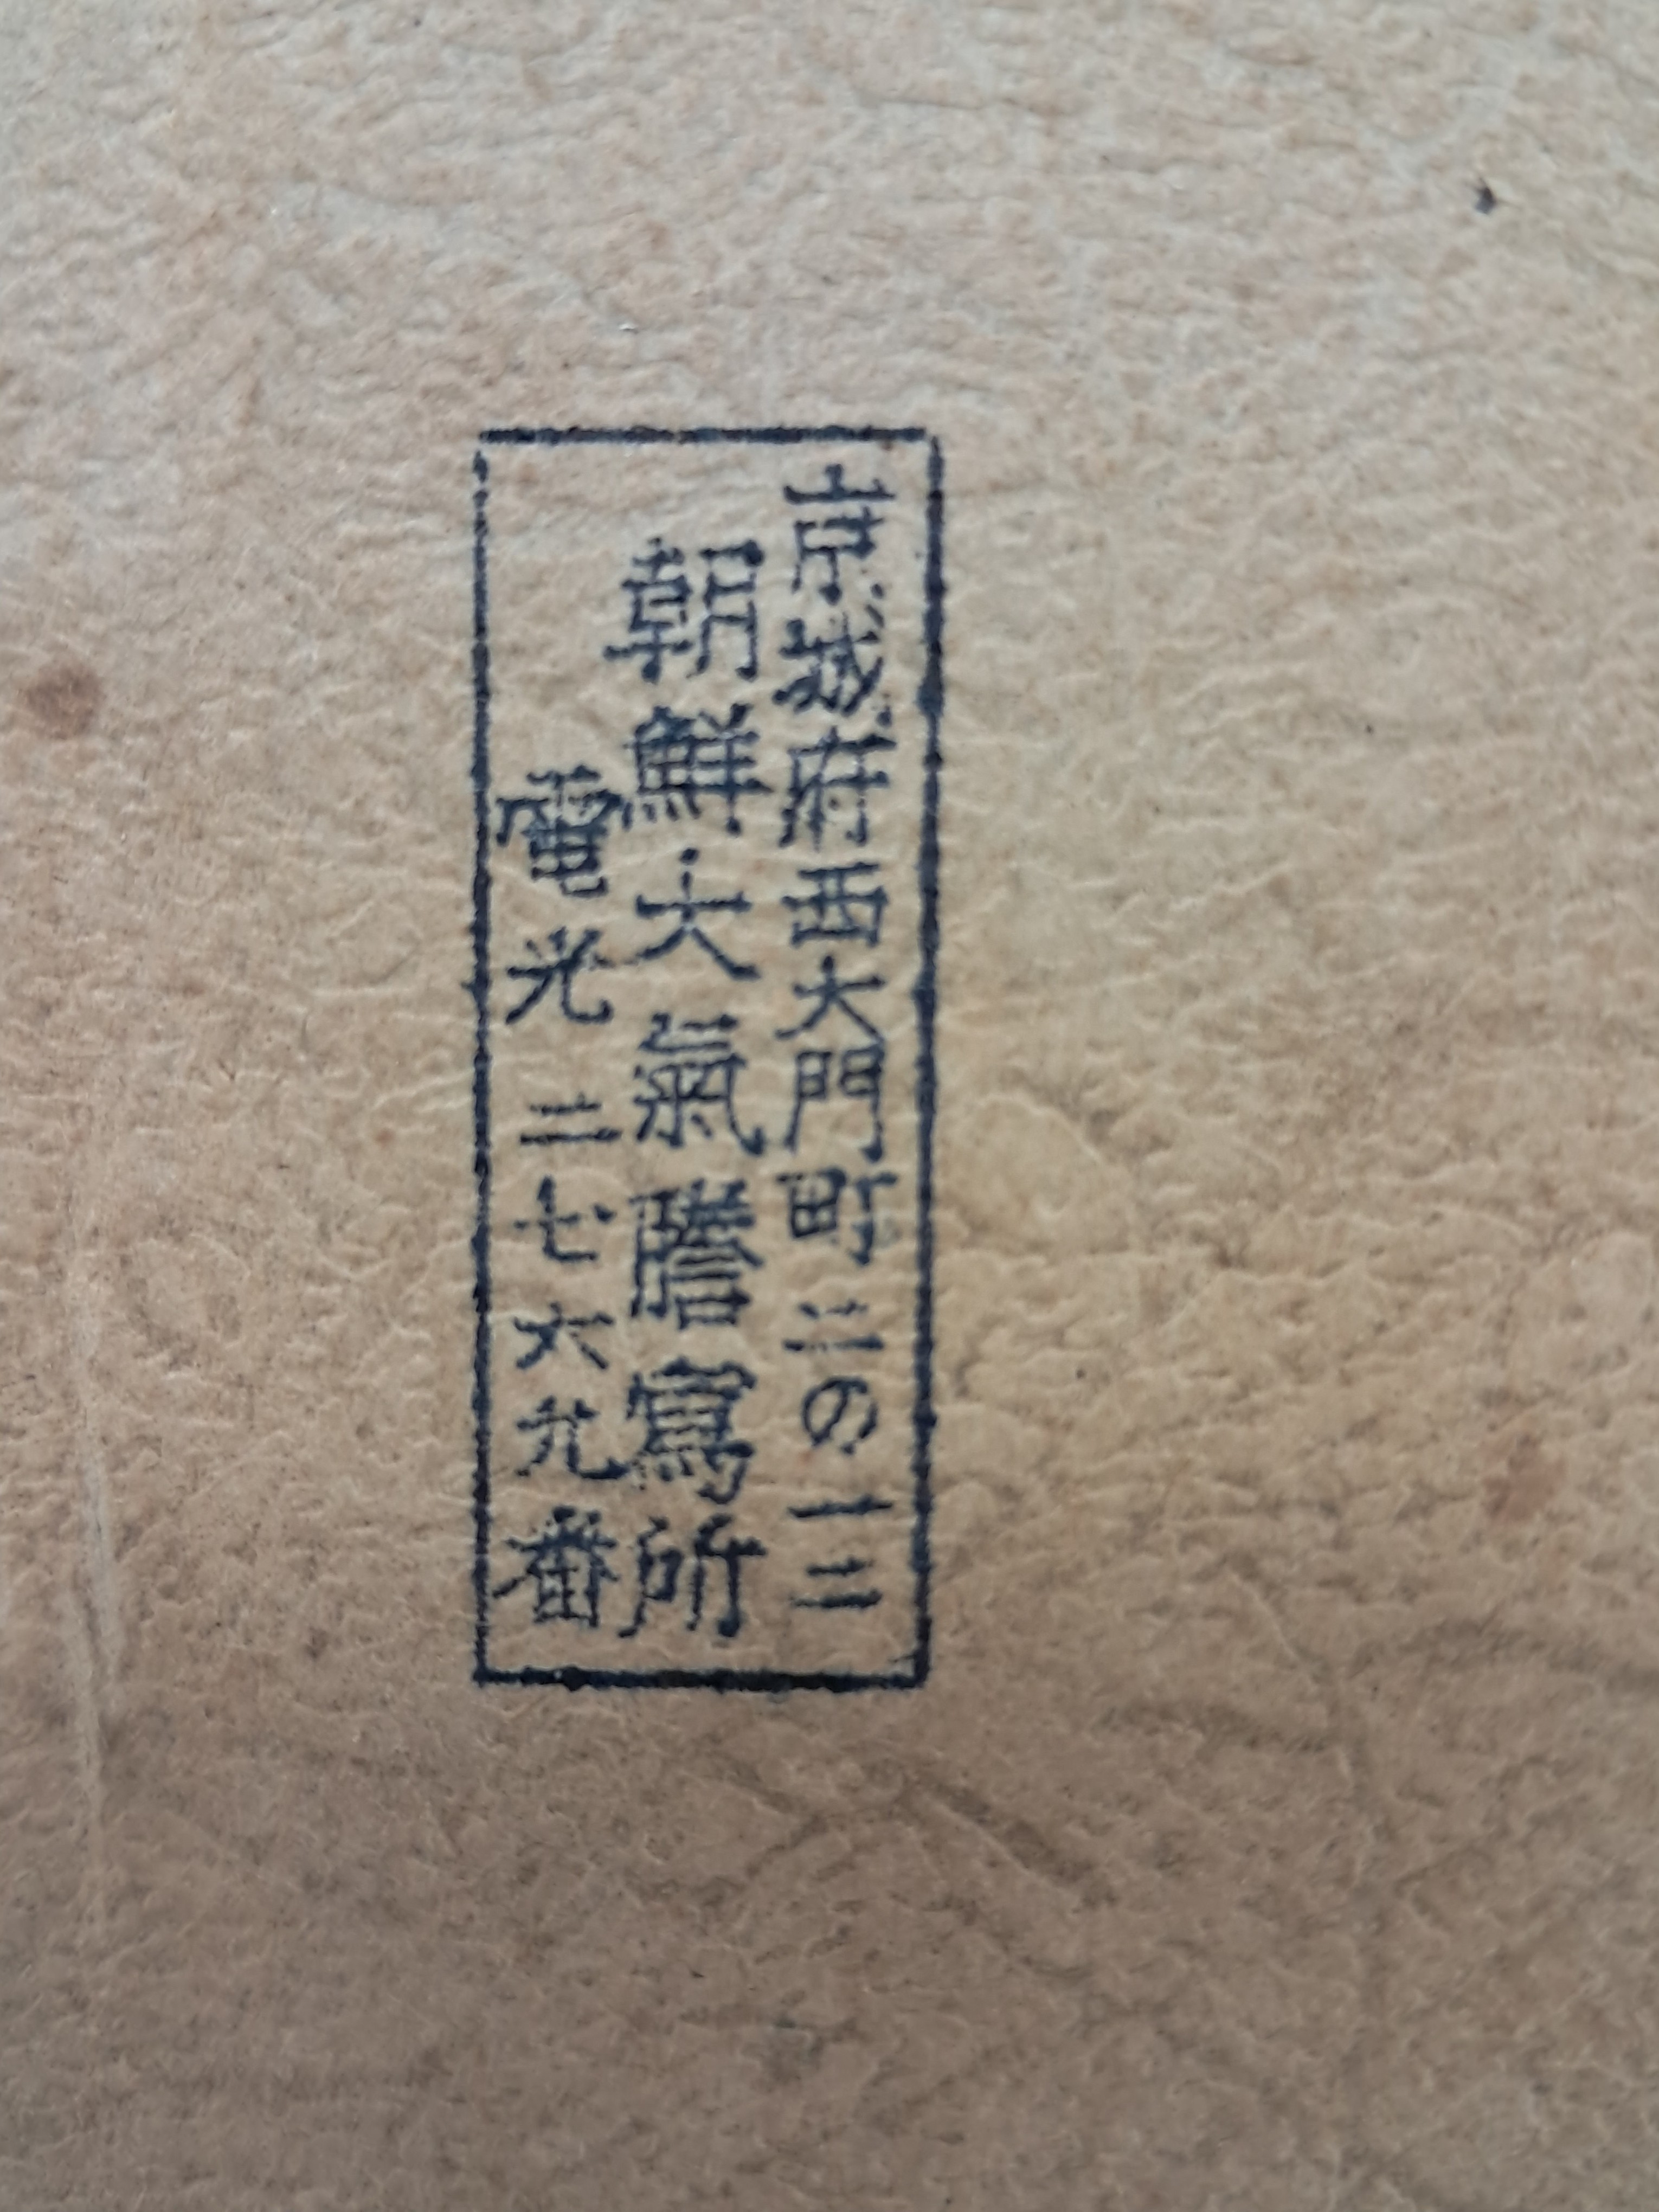 京城府西大門町二の一二
朝鮮大氣謄寫所
電光二七六九番